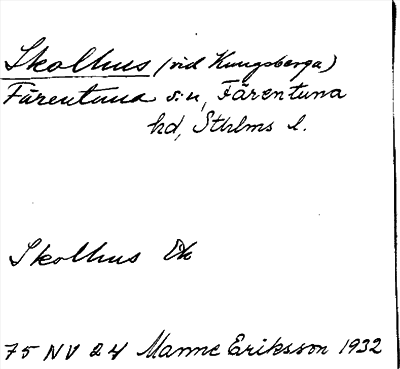 Skolhus (vid Kungsberga)
Färentuna s:n, Färentuna
hd, Sthlms l.
Skolhus Ek
75 NV 24 Manne Eriksson 1932